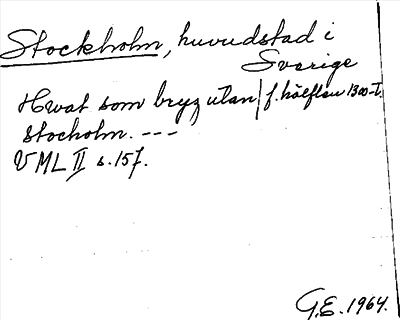 Stockholm, huvudstad i
Sverige
Hwat som bryz utan / f. hälften 1300-t.
stocholm. ---
VML II s. 157.
G.E. 1964.